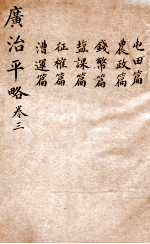 屯田篇
農政篇
錢幣篇
鹽課篇
征榷篇
漕運篇
廣治平略 卷三